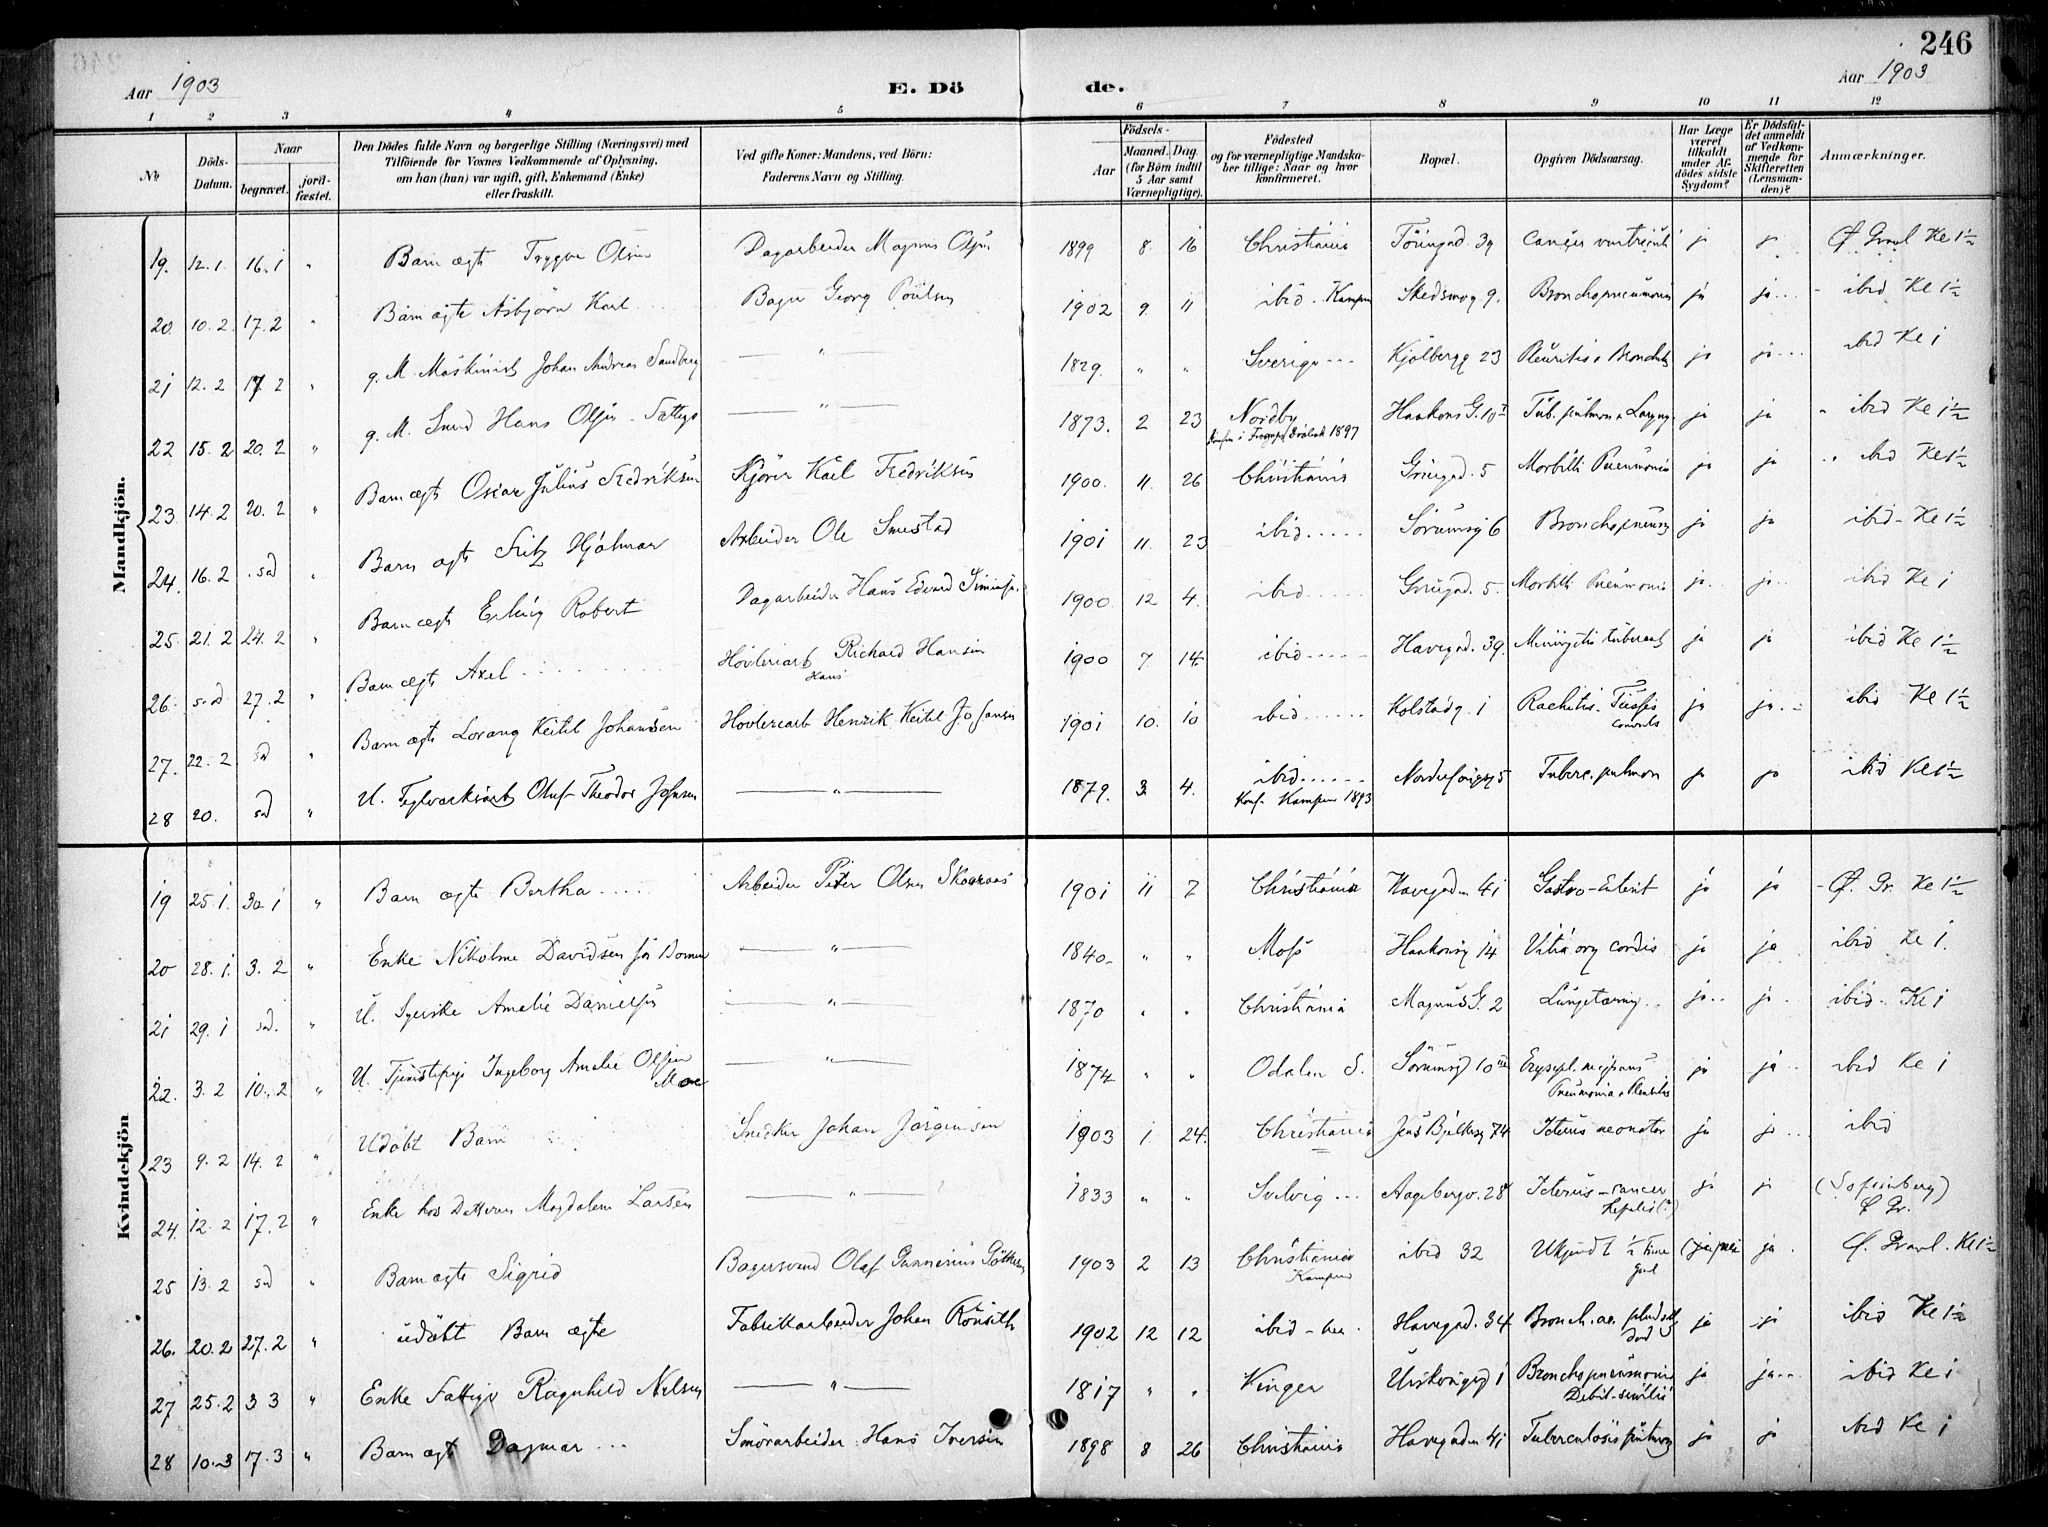 246
Aar 1903
E. Döde.
Aar 1903
1 2 3 4 5 6 7 8 9 10 11 12
No
Döds-Datum.
Naar
begravet.
jordfæstet.
Den Dödes fulde Navn og borgerlige Stilling (Næringsvei) med Tilföiende for Voxnes Vedkommende af Oplysning, om han (hun) var ugift, gift, Enkemand (Enke) eller fraskilt.
Ved gifte Koner: Mandens, ved Börn: Faderens Navn og Stilling.
Födsels-
Aar
Maaned. Dag.
(for Börn indtil 5 Aar samt Værnepligtige).
Födested og for værnepligtige Mandskaber tillige: Naar og hvor konfirmeret.
Bopæl.
Opgiven Dödsaarsag.
Har Læge været tilkaldt under Afdödes sidste Sygdom?
Er Dödsfaldet anmeldt af Vedkommende for Skifteretten (Lensmanden)?
Anmærkninger.
Mandkjön.
19. 12.1. 16.1 " Barn ægte Trygve Olsen Dagarbeider Magnus Olsen 1899 8. 16 Christiania Töiengad. 39 cancer ventriculi ja ja Ø. Gravl Ke 1 1/2
20. 10.2. 17.2 " Barn ægte Asbjörn Karl Bager Georg Poulsen 1902 9. 11 ibid. Kampen Skedsmog 9. Bronchopneumoni ja ja - ibid Ke 1 1/2
21 12.2 17.2 " g. M. Maskinist Johan Andreas Sandberg " 1829. " " Sverige Kjölbergg 23 Pleuritis & Bronchitis ja ja ibid Ke 1
22 15.2 20.2 " g. M. Smed Hans Olsen Fattigv " 1873. 2 23 Nordby 1897 Haakons G. 10 Tub. pulmon & Laryng. ja ja " ibid Ke 1 1/2
23. 14.2 20.2 " Barn ægte Oscar Julius Fredriksen Kjörer Karl Fredriksen 1900. 11. 26 Christiania Grüegad. 5 Morbilli Pneumonia ja ja " ibid Ke 1 1/2
24. 16.2 sad " Barn ægte Fritz Hjalmar Arbeider Ole Smestad 1901 11. 23 ibid Sörumsg 6 Bronchopneum ja ja ibid - Ke 1 1/2
25. 21.2 24.2 " Barn ægte Erling Robert Dagarbeider Hans Edvard 1900 12 4. ibid Grüegad. 5. Morbilli Pneumonia ja ja ibid Ke 1
26. sad 27.2 " Barn ægte Axel Hövleriarb Richard Hansen Hans 1900 7. 14. ibid Havegad. 39. Meningitis tubercul ja ja ibid Ke 1 1/2
27. 22.2 sd " Barn ægte Lorang Keitel Johansen Hövleriarb Henrik Keitel Johansen 1901 10. 10 ibid Kolstadg. 1 Rachitis. Tussis convuls ja ja ibid Ke 1 1/2
28 20. sd " U. Teglverksarb Oluf Theodor Johnsen " 1879. 3. 4. ibid Konf. Kampen 1893 5 Tuberc. pulmon ja ja ibid Ke 1 1/2
Kvindekjön
19 25.1. 30.1 " Barn ægte Bertha Arbeider Peter Olsen 1901 11 7 Christiania Havegaden 41 Gastro-Enterit ja ja - Ø. Gr. Ke 1 1/2
20 28.1. 3.2 " Enke Nikoline Davidsen " 1840. " " Moss Haakonsg 14 Vitia org cordis ja ja ibid Ke 1.
21 29.1 sd. " U. Syerske Amalie Danielsen " 1870 " " Christiania Magnus G. 2 Lungetæring ja ja ibid. Ke 1
22. 3.2 10.2 " U. Tjenestepige Ingeborg Amalie Olsen Moe " 1874 " " Odalen S. Sörumsg 10 Erysipl. Pneumonia & ja ja ibid Ke 1
23 9.2 14.2 " Udöbt Barn Snedker Johan Jörgensen 1903 1 24. Christiania Jens Bjelkesg 74 Icterus neonator ja ja ibid
24. 12.2 17.2 " Enke hos Datteren Magdalene Larsen " 1833 " " Svelvig Aagebergv. 28 Icterus - cancer hepatis (?) ja ja (Sofienberg) Ø Gr.
25 13.2 sd " Barn ægte Sigrid Bagersvend Olaf Gunnerius 1903 2 13 Christiania Kampen ibid 32 Ukjendt 1/2 Time gml ja Ø. Gravl. Ke 1 1/2
26. 20.2 27.2 " udöbt Barn ægte Fabrikarbeider Johan 1902 12 12 ibid - her Havegad. 34 Bronch. ac. pludselig Död ja ja ibid Ke 1 1/2
27 25.2 3 3 " Enke Fattigv Ragnhild Nilsen " 1817 " " Vinger Urskougg 1 Bronchopneumoni Debil-senilis ja ja ibid Ke 1
28 10.3 17.3 " Barn ægte Dagmar Smörarbeider Hans Iversen 1898 8 26 Christiania Havegaden 41 Tuberculosis pulmon ja ja ibid Ke 1